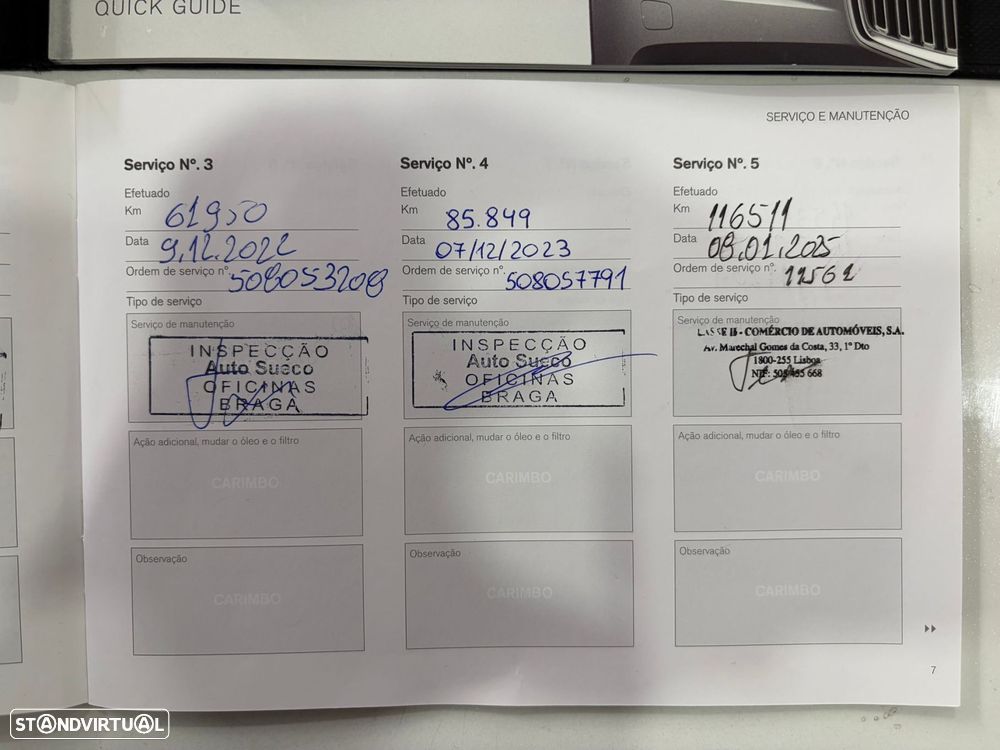 QUICK GUIDE
SERVIÇO E MANUTENÇÃO
Serviço Nº. 3
Efetuado
Km 61950
Data 9.12.2022
Ordem de serviço nº. 508053208
Tipo de serviço
Serviço de manutenção
INSPECÇÃO
Auto Sueco
OFICINAS
BRAGA
Ação adicional, mudar o óleo e o filtro
CARIMBO
Observação
CARIMBO
Serviço Nº. 4
Efetuado
Km 85.849
Data 07/12/2023
Ordem de serviço nº. 508057791
Tipo de serviço
Serviço de manutenção
INSPECÇÃO
Auto Sueco
OFICINAS
BRAGA
Ação adicional, mudar o óleo e o filtro
CARIMBO
Observação
CARIMBO
Serviço Nº. 5
Efetuado
Km 116511
Data 08.01.2025
Ordem de serviço nº. 12561
Tipo de serviço
Serviço de manutenção
- COMÉRCIO DE AUTOMÓVEIS, S.A.
Av. Marechal Gomes da Costa, 33, 1º Dto
1800-255 Lisboa
NIF: 668
Ação adicional, mudar o óleo e o filtro
CARIMBO
Observação
CARIMBO
7
STANDVIRTUAL